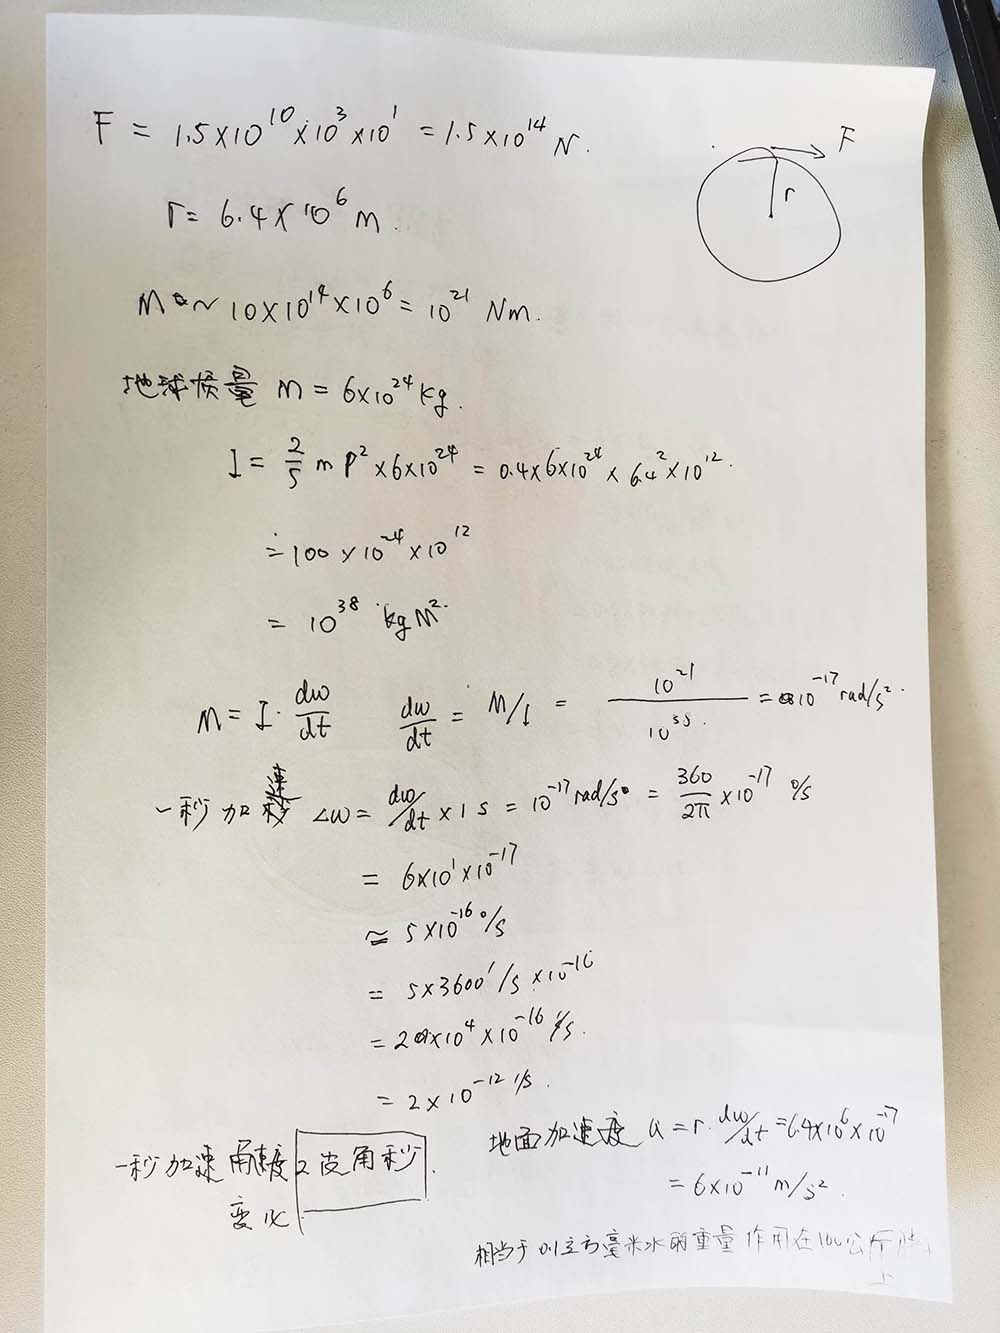 F = 1.5×10¹⁰×10³×10¹ = 1.5×10¹⁴ N.
F
r
r = 6.4×10⁶ m.
M ~ 10×10¹⁴×10⁶ = 10²¹ Nm.
地球质量 m = 6×10²⁴ kg.
I = 2/5 m r² × 6×10²⁴ = 0.4×6×10²⁴ × 6.4² × 10¹².
= 100 × 10²⁴ × 10¹²
= 10³⁸ kgM².
M = I · dω/dt  dω/dt = M/I = 10²¹/10³⁸ = 10⁻¹⁷ rad/s².
一秒加速 Δω = dω/dt × 1 s = 10⁻¹⁷ rad/s = 360/2π × 10⁻¹⁷ °/s
= 6×10¹×10⁻¹⁷
≈ 5×10⁻¹⁶ °/s
= 5×3600″/s ×10⁻¹⁶
= 2×10⁴×10⁻¹⁶ ″/s.
= 2×10⁻¹² ″/s.
一秒加速角速度2皮角秒.
变化
地面加速度 a = r · dω/dt = 6.4×10⁶×10⁻¹⁷
= 6×10⁻¹¹ m/s².
相当于 0.1立方毫米水的重量 作用在100公斤
上